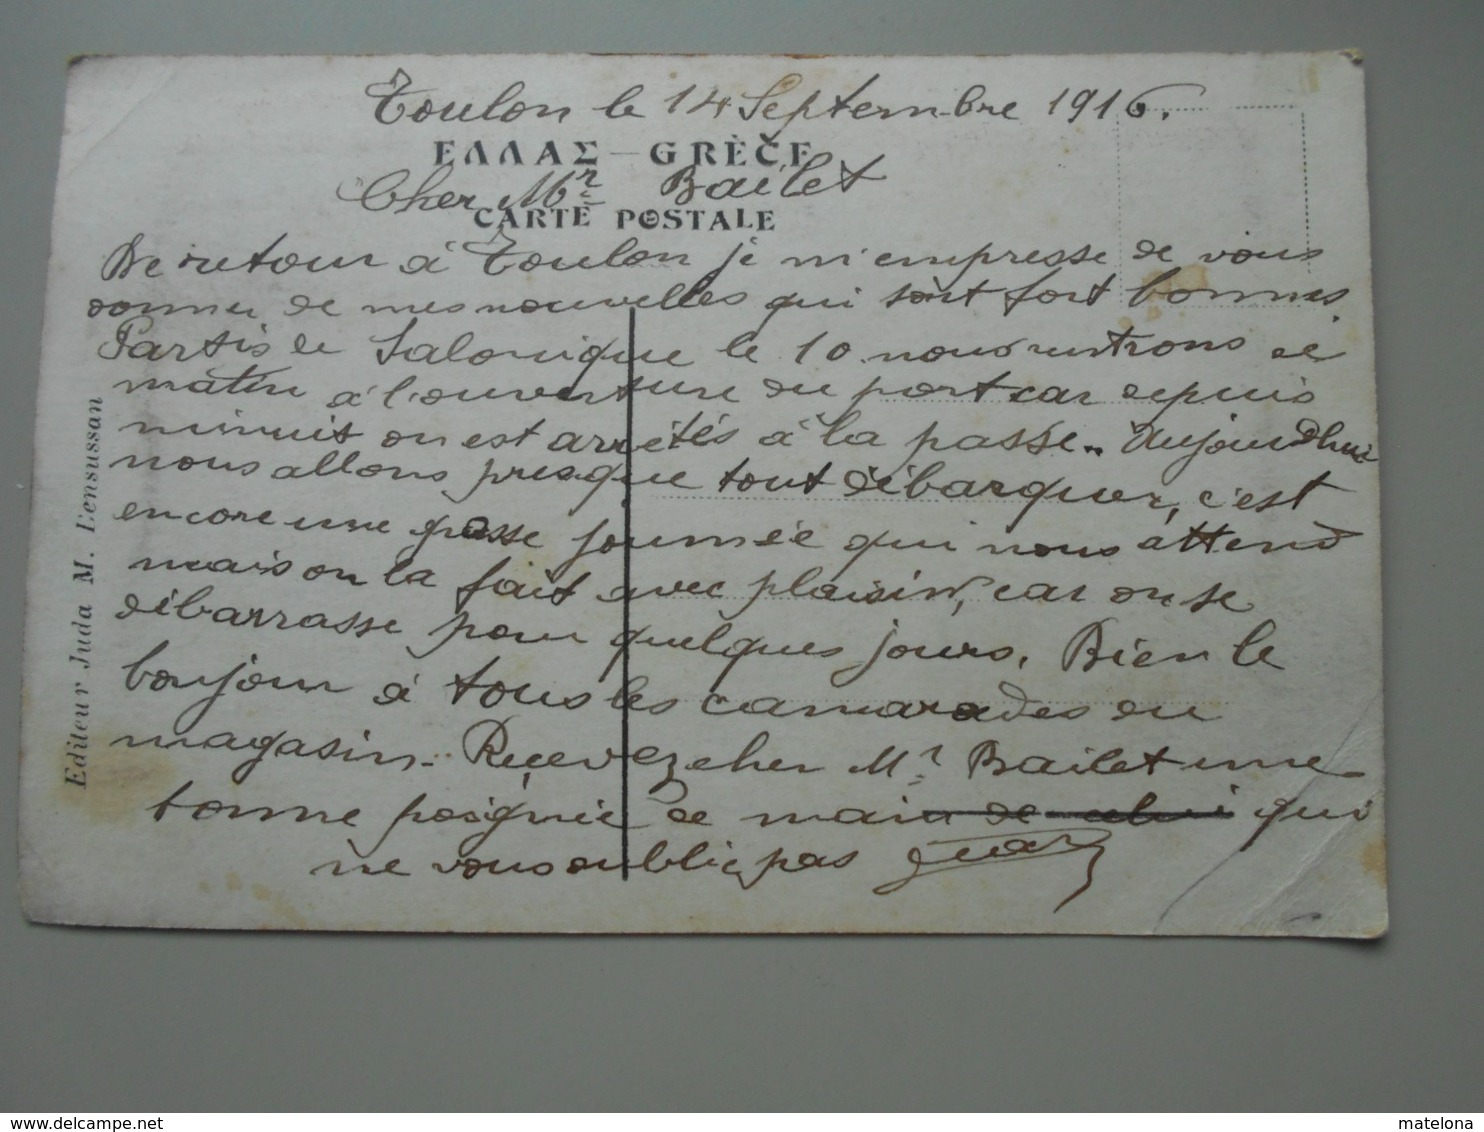 Toulon le 14 Septembre 1916.
ΕΛΛΑΣ – GRÈCE
Cher Mr Bailet
CARTE POSTALE
De retour à Toulon je m'empresse de vous
donner de mes nouvelles qui sont fort bonnes.
Partis de Salonique le 10 nous rentrons ce
matin à l'ouverture du port car depuis
minuit on est arrêtés à la passe. Aujourd'hui
nous allons presque tout débarquer, c'est
encore une grosse journée qui nous attend
mais on la fait avec plaisir, car on se
débarrasse pour quelques jours. Bien le
bonjour à tous les camarades du
magasin. Recevez cher Mr Bailet une
bonne poignée de main de celui qui
ne vous oublie pas
Editeur Juda M. Bensussan
www.delcampe.net
matelona